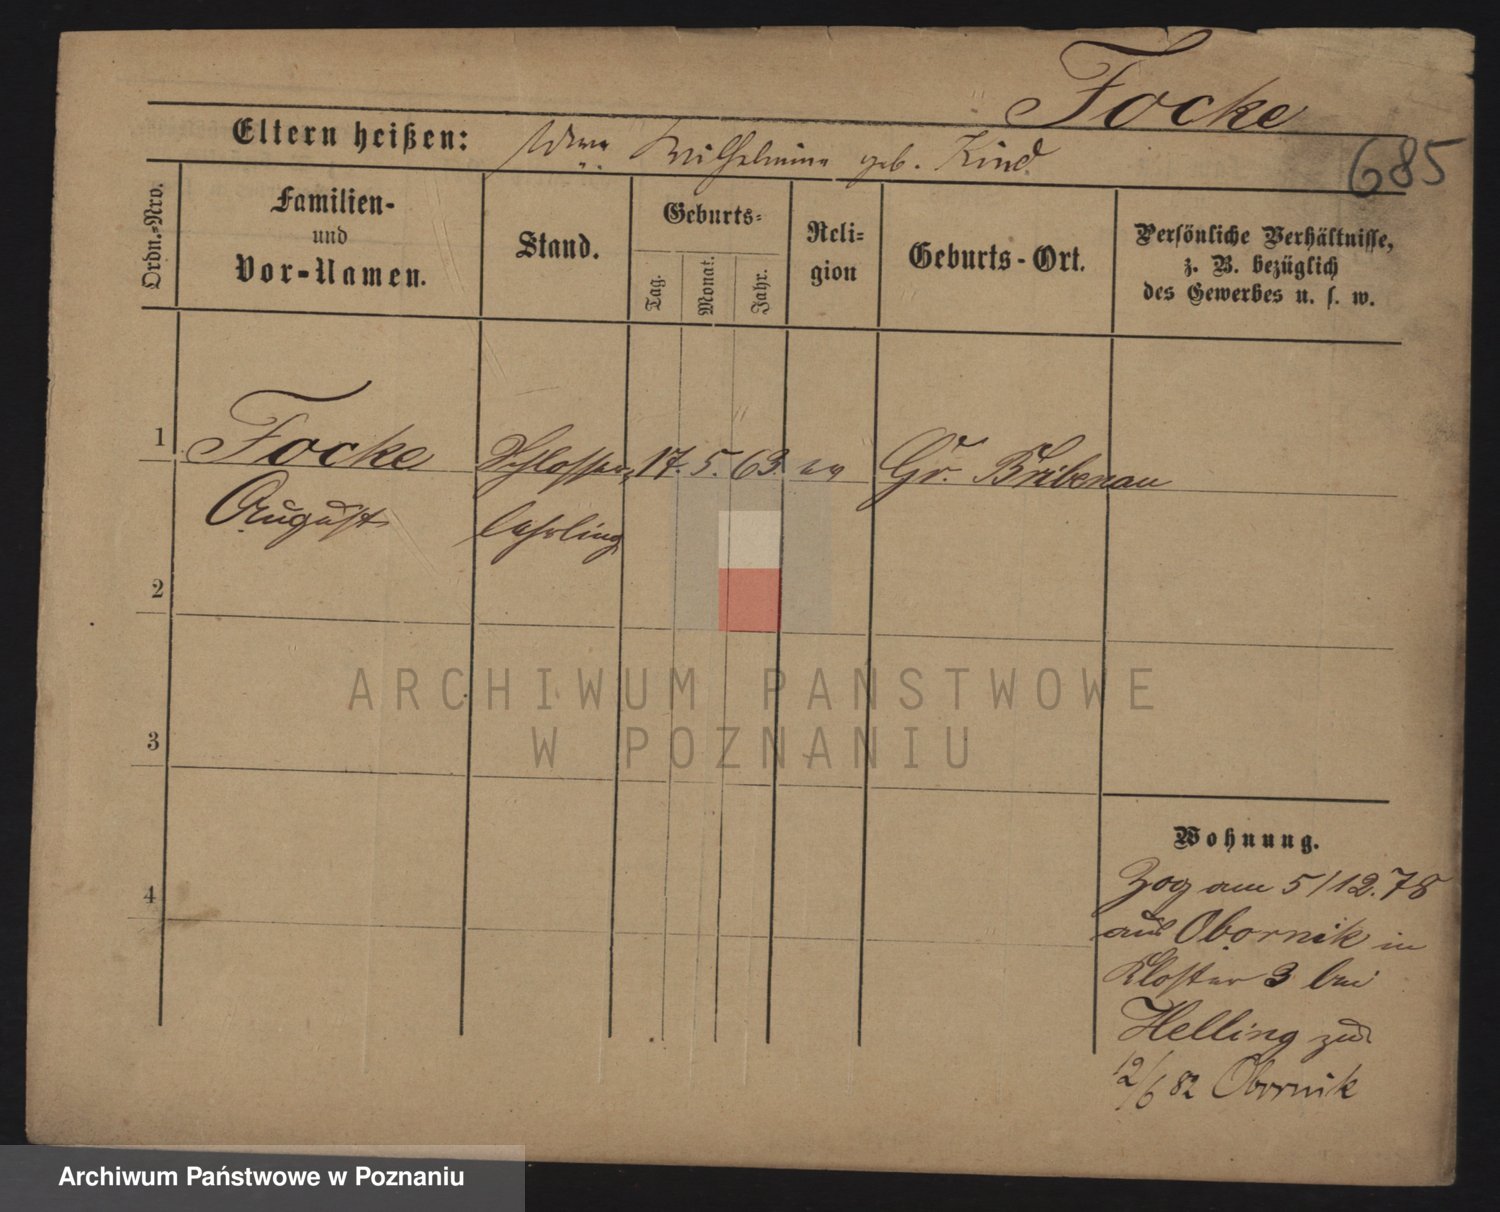 Focke
Eltern heißen: Wilhelmine geb. Kind
685
Ordn.-Nro.
Familien-
und
Vor-Namen.
Stand.
Geburts-
Tag.
Monat.
Jahr.
Reli-
gion
Geburts-Ort.
Persönliche Verhältnisse,
z. B. bezüglich
des Gewerbes u. s. w.
1 Focke Schlosser 17. 5. 63. ev Gr. Bribenau
August lehrling
2
3
4
ARCHIWUM PAŃSTWOWE
W POZNANIU
Wohnung.
Zog am 5/12.78
aus Obornik in
Kloster 3 bei
Helling zu
12/6 82 Obornik
Archiwum Państwowe w Poznaniu